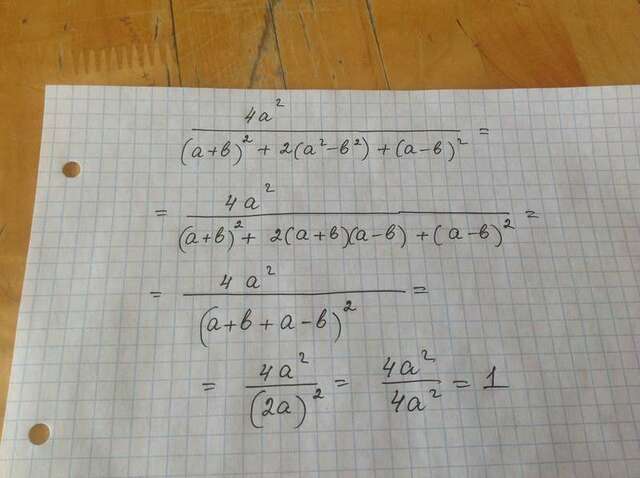 4a² / ((a+в)² + 2(a²-в²) + (a-в)²) =
= 4a² / ((a+в)² + 2(a+в)(a-в) + (a-в)²) =
= 4a² / (a+в+a-в)² =
= 4a² / (2a)² = 4a² / 4a² = 1